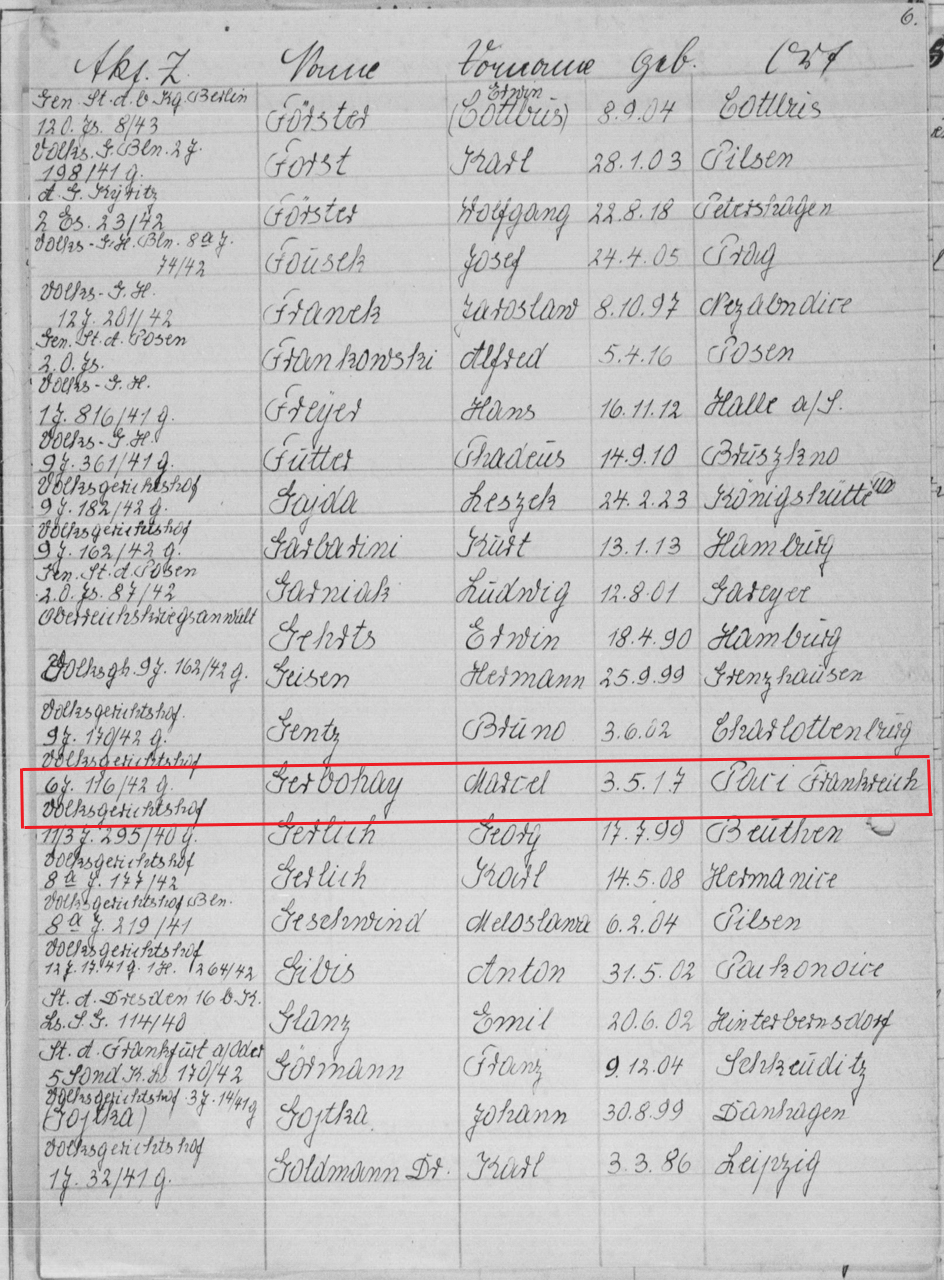 6.
Akt. Z. Name Vorname Geb. Ort
Gen. St. d. b Kg. Berlin Erwin
12 O. Js. 8/43 Förster (Cottbüs) 8.9.04 Cottbüs
Volks. G. Bln. 2 J.
198/41 g. Forst Karl 28.1.03 Pilsen
d. G. Kÿritz
2 Es. 23/42 Förster Wolfgang 22.8.18 Petershagen
Volks-G.H. Bln. 8a J.
74/42 Foüsek Josef 24.4.05 Prag
Volks-G.H.
12 J. 201/42 Franek Jaroslaw 8.10.97 Nezabndice
Gen. St. d. Posen
2.O. Js. Frankowski Alfred 5.4.16 Posen
Volks-G.H.
1 J. 816/41 g. Freÿer Hans 16.11.12 Halle a/S.
Volks-G.H.
9 J. 361/41 g. Fütter Thadeüs 14.9.10 Brüszkno
Volksgerichtshof
9 J. 182/42 g. Gajda Leszek 24.2.23 Königshütte
Volksgerichtshof
9 J. 162/42 g. Garbarini Kürt 13.1.13 Hambürg
Gen. St. d. Posen
2.O. Js. 87/42 Garniak Lüdwig 12.8.01 Gareyer
Oberreichskriegsanwalt
Gehrts Erwin 18.4.90 Hambürg
Volksgh. 9 J. 162/42 g. Geisen Hermann 25.9.99 Grenzhaüsen
Volksgerichtshof.
9 J. 170/42 g. Gentz Brüno 3.6.02 Charlottenbürg
Volksgerichtshof
6 J. 116/42 g. Gerbohay Marcel 3.5.17 Paci Frankreich
Volksgerichtshof
11/3 J. 295/40 g. Gerlich Georg 17.7.99 Beüthen
Volksgerichtshof
8a J. 177/42 Gerlich Karl 14.5.08 Hermanice
Volksgerichtshof Bln.
8a J. 219/41 Geschwind Meloslawa 6.2.04 Pilsen
Volksgerichtshof
12 J. 17.41 g. 1H. 264/42 Gibis Anton 31.5.02 Paukonoice
St. d. Dresden 16 b K.
Ls. S.G. 114/40 Glanz Emil 20.6.02 Hinterbernsdorf
St. d. Frankfürt a/Oder
5 Sond K. Ls 170/42 Görmann Franz 9.12.04 Schkeüditz
Volksgerichtshof 3 J. 14/41 g
(Gojtka) Gojtka Johann 30.8.99 Danhagen
Volksgerichtshof
1 J. 32/41 g. Goldmann Dr. Karl 3.3.86 Leipzig